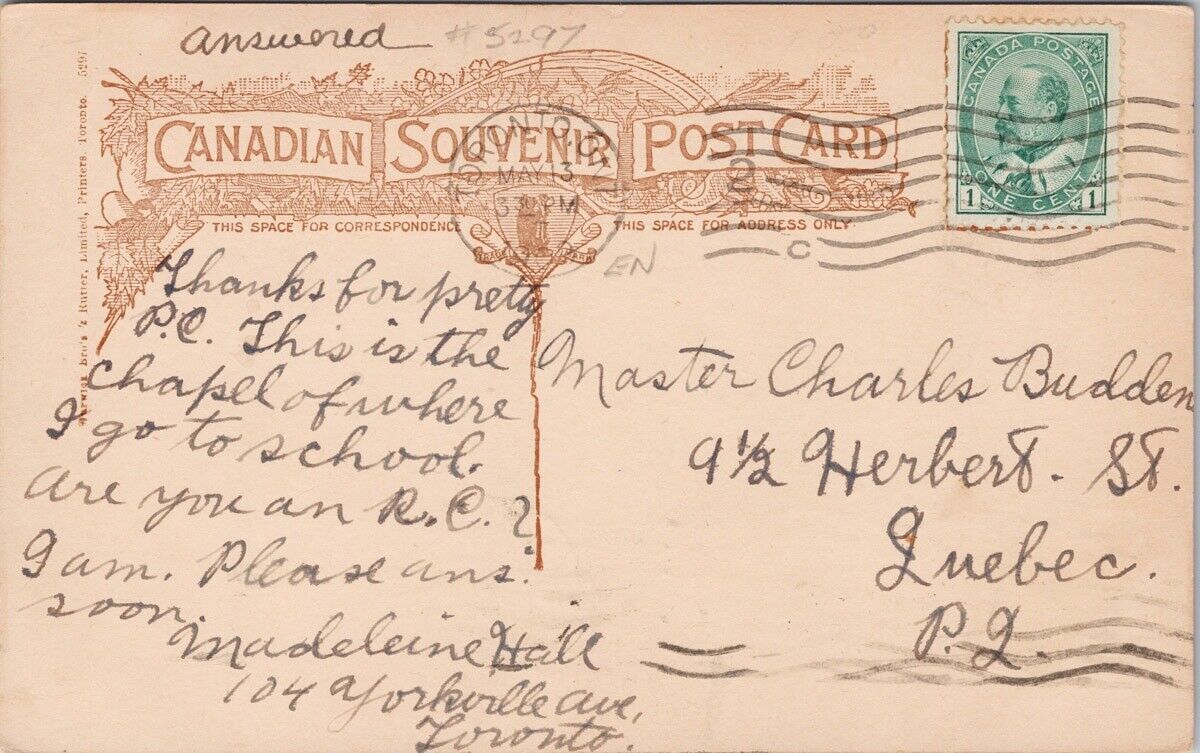 answered #5297
CANADIAN SOUVENIR POST CARD
CANADA POSTAGE
1 ONE CENT 1
TORONTO, ONT
MAY 13
PM
2
C
THIS SPACE FOR CORRESPONDENCE
THIS SPACE FOR ADDRESS ONLY
TRADE MARK
EN
Warwick Bro's & Rutter, Limited, Printers. Toronto. 5297
Thanks for pretty
P.C. This is the
chapel of where
I go to school.
are you an R.C.?
I am. Please ans.
soon.
Madeleine Hall
104 Yorkville ave,
Toronto.
Master Charles Budden
9½ Herbert. St.
Quebec.
P.Q.